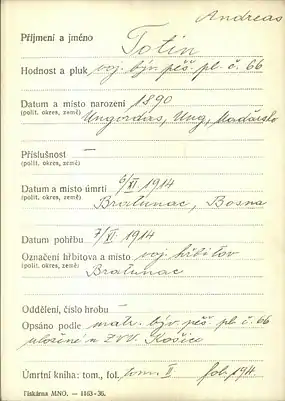 Andreas
Příjmení a jméno Totin
Hodnost a pluk voj. býv. pěš. pl. č. 66
Datum a místo narození 1890
(polit. okres, země) Ungordas, Ung, Maďarsko
Příslušnost —
(polit. okres, země)
Datum a místo úmrtí 6/XI 1914
(polit. okres, země) Bratunac, Bosna
Datum pohřbu 7/XI 1914
Označení hřbitova a místo voj. hřbitov
(polit. okres, země) Bratunac
Oddělení, číslo hrobu —
Opsáno podle matr. býv. pěš. pl. č. 66
uložené u ZVV. Košice
Úmrtní kniha: tom., fol. tom. II fol. 194.
Tiskárna MNO. — 1163-36.